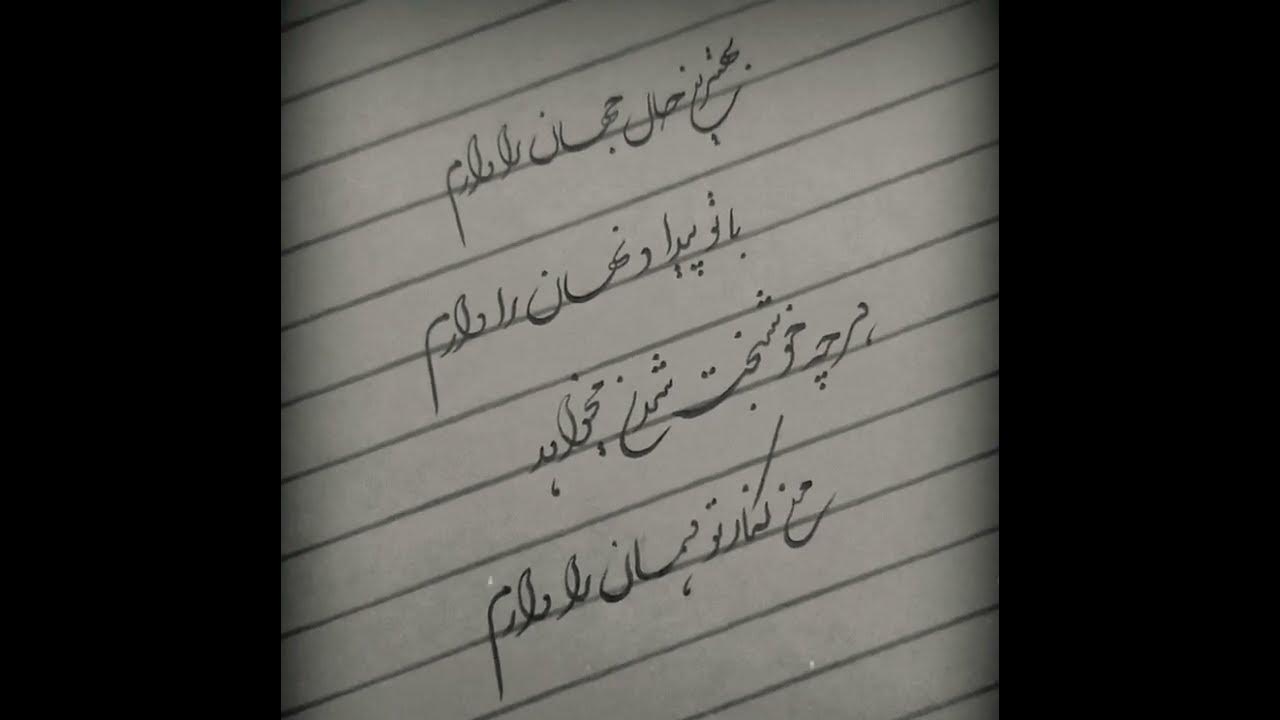 بهترین حال جهان را دارم
با تو پیدا و نهان را دارم
هرچه خوشبخت شدن میخواهد
من کنار تو همان را دارم